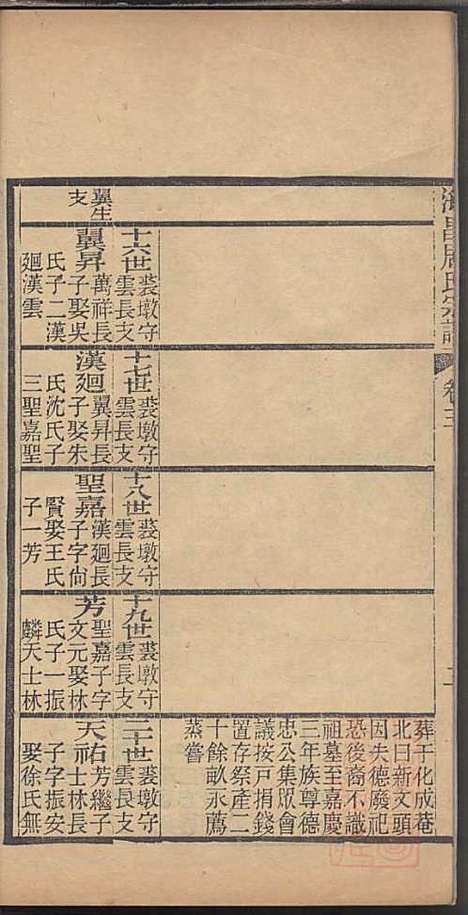 周氏宗譜
卷三
葬于化成菴
北曰新文頭
因失德廢祀
恐後裔不識
祖墓至嘉慶
三年族尊德
忠公集眾會
議按戶捐錢
置存祭產二
十餘畝永薦
蒸嘗
翼生
支
十六世
裘墩守
雲長支
翼昇
萬祥長
子娶吳
氏子二漢
廻漢雲
十七世
裘墩守
雲長支
漢廻
翼昇長
子娶朱
氏沈氏子
三聖嘉聖
十八世
裘墩守
雲長支
聖嘉
漢廻長
子字尙
賢娶王氏
子一芳
十九世
裘墩守
雲長支
芳
聖嘉子字
文元娶林
氏子一振
麟天士林
二十世
裘墩守
雲長支
天祐
芳繼子
士林長
子字振安
娶徐氏無